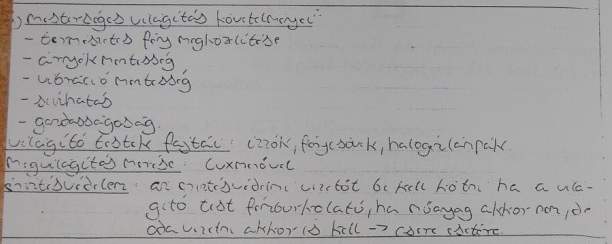 mesterséges világítás követelményei:
- természetes fény megközelítése
- árnyékmentesség
- vibráció mentesség
- színhatás
- gazdaságosság
világító testek fajtái: izzók, fénycsövek, halogénlámpák
megvilágítás mérése: luxmérővel
érintésvédelem: az érintésvédelmi vezetőt be kell kötni ha a vilá-
gító test fémburkolatú, ha műanyag akkor nem, de
oda vezetni akkor is kell -> csere esetére